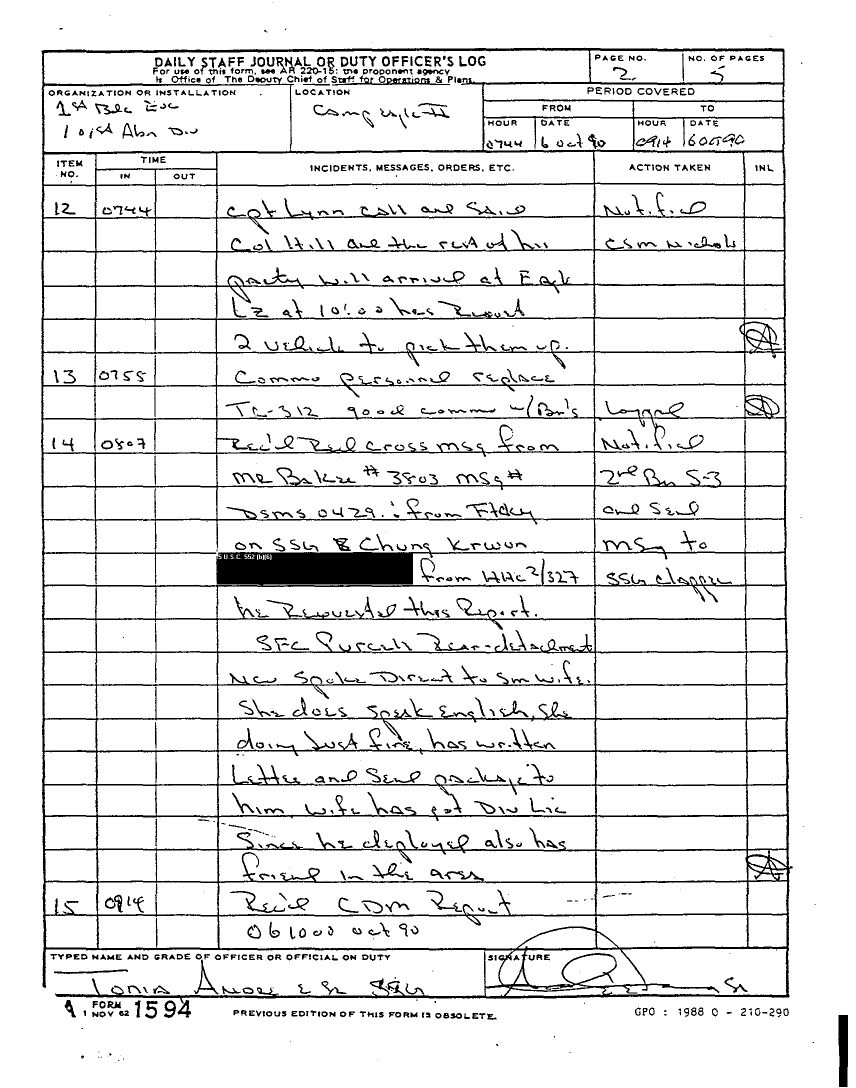 DAILY STAFF JOURNAL OR DUTY OFFICER'S LOG
For use of this form, see AR 220-15; the proponent agency
is Office of The Deputy Chief of Staff for Operations & Plans.
PAGE NO.
2
NO. OF PAGES
5
ORGANIZATION OR INSTALLATION
1st Bde
101st Abn Div
LOCATION
PERIOD COVERED
FROM
TO
HOUR
DATE
HOUR
DATE
0744
6 Oct 90
0914
6 Oct 90
ITEM NO.
TIME
IN
OUT
INCIDENTS, MESSAGES, ORDERS, ETC.
ACTION TAKEN
INL
12 0744 Cpt Lynn call and said Notified
Col Hill and the rest of his CSM Nichols
party will arrival at Eagle
LZ at 10:00 has Request
2 vehicle to pick them up.
13 0755 Commo personnel replace
TC-312 good commo w/Bn's Logged
14 0807 Rec'd Red Cross msg from Notified
MR Baker # 3803 msg # 2nd Bn S-3
DSMS 0429. from Ftcky and Send
on SSG Chung Krwun msg to
5 U.S.C. 552 (b)(6)
from HHC 2/327 SSG Clapper
he Requested this Report.
SFC Purcell Rear-detachment
NCO Spoke Direct to Sm wife.
She does speak English, she
doing Just fine, has written
Letter and Send package to
him, wife has got Div Lic
Since he deployed also has
friend in the area
15 0914 Rec'd CDM Report
061000 Oct 90
TYPED NAME AND GRADE OF OFFICER OR OFFICIAL ON DUTY
SIGNATURE
FORM
1 NOV 62 1594
PREVIOUS EDITION OF THIS FORM IS OBSOLETE.
GPO : 1988 O - 210-290